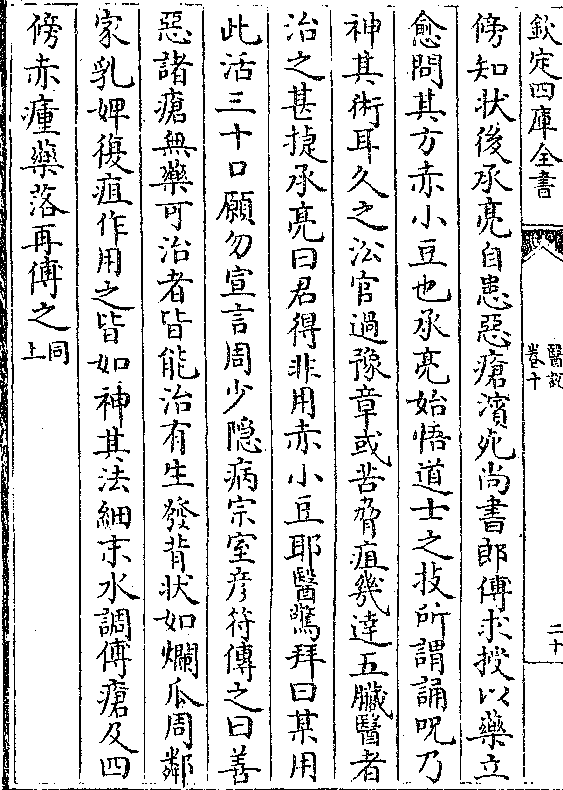 欽定四庫全書
醫說
卷十
二十
傍知狀後承亮自患惡瘡濱死尚書郎傅求授以藥立
愈問其方赤小豆也承亮始悟道士之技所謂誦呪乃
神其術耳久之沿官過豫章或苦脅疽幾達五臟醫者
治之甚捷承亮曰君得非用赤小豆耶醫驚拜曰某用
此活三十口願勿宣言周少隱病宗室彦符傳之曰善
惡諸瘡無藥可治者皆能治有生發背状如爛瓜周鄰
家乳婢復疽作用之皆如神其法細末水調傅瘡及四
傍赤瘇藥落再傅之同上